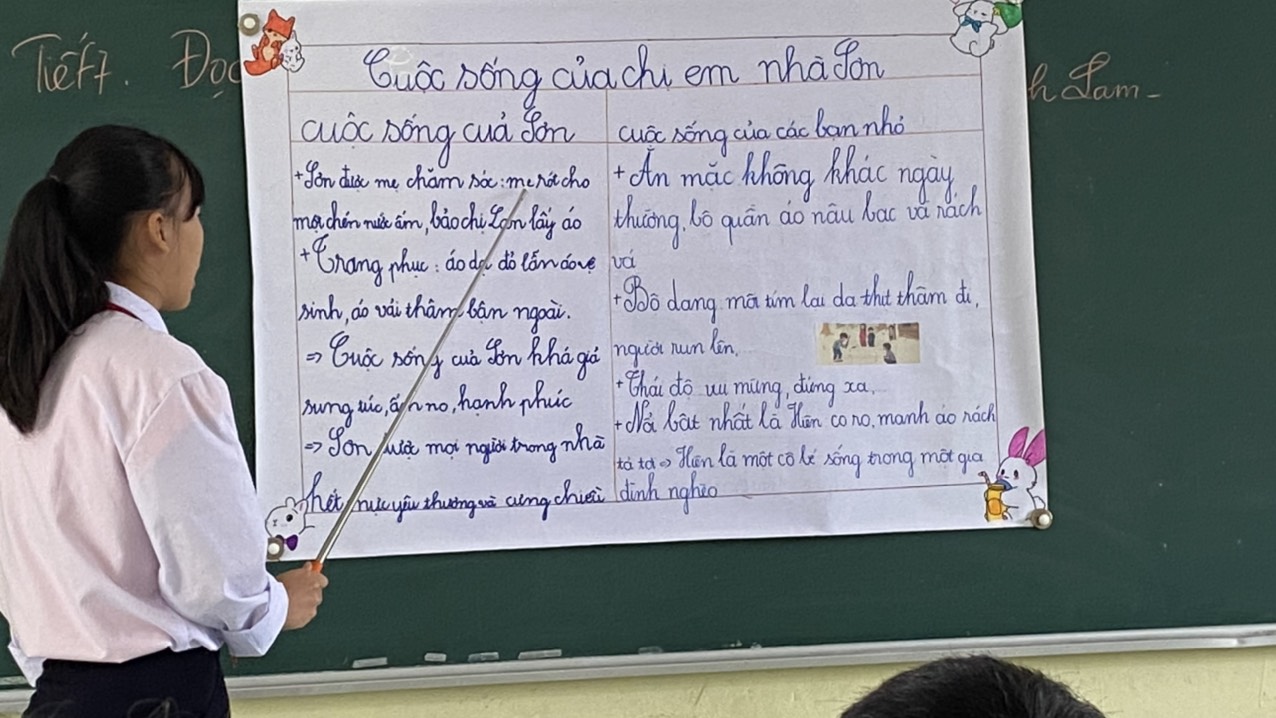 Tiết 7. Đọc
h Lam -
Cuộc sống của chị em nhà Sơn
cuộc sống của Sơn
+ Sơn được mẹ chăm sóc: mẹ rót cho
một chén nước ấm, bảo chị Lan lấy áo
+ Trang phục: áo dạ đỏ lẫn áo vệ
sinh, áo vải thâm bên ngoài.
=> Cuộc sống của Sơn khá giả
sung túc, ấm no, hạnh phúc
=> Sơn được mọi người trong nhà
hết mực yêu thương và cưng chiều
cuộc sống của các bạn nhỏ
+ Ăn mặc không khác ngày
thường, bộ quần áo nâu bạc và rách
vá
+ Bộ dạng mũi tím lại da thịt thâm đi,
người run lên.
+ Thái độ vui mừng, đứng xa.
+ Nổi bật nhất là Hiên co ro, manh áo rách
tả tơi => Hiên là một cô bé sống trong một gia
đình nghèo